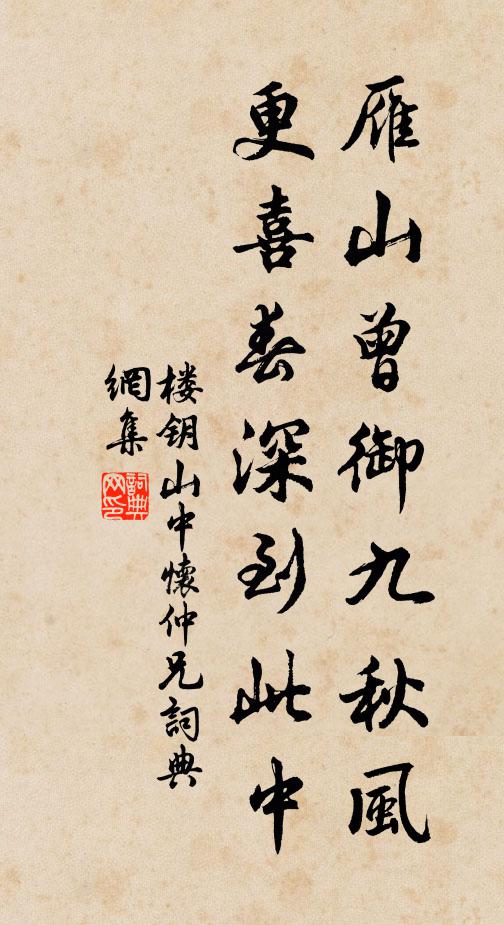 雁山曾御九秋風
更喜春深到此中
楼钥山中懷仲兄詞典
網集
詞典
网印